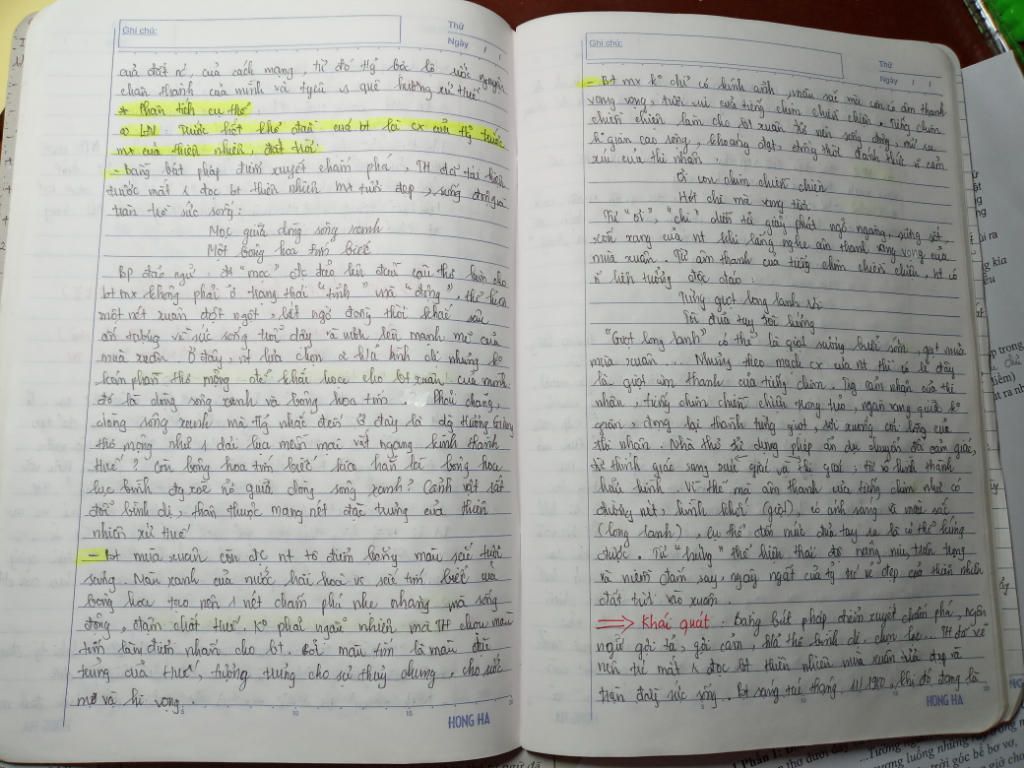 Ghi chú:
Thứ
Ngày / /
của đất nc, của cách mạng, từ đó tg bộc lộ ước nguyện
chân thành của mình và tyêu vs quê hương xứ Huế
* Phân tích cụ thể
a) LĐ1: Trước hết khổ đầu của bt là cx của tg trước
mx của thiên nhiên, đất trời.
- Bằng bút pháp điểm xuyết chấm phá, TH đã tái hiện
trước mắt đọc bt thiên nhiên mx tươi đẹp, sống động và
tràn trề sức sống:
Mọc giữa dòng sông xanh
Một bông hoa tím biếc
BP đảo ngữ "mọc" đc đảo lên đầu câu thơ làm cho
bt mx không phải ở trạng thái "tĩnh" mà "động", thể hiện
một nét xuân đột ngột, bất ngờ đồng thời khắc sâu
ấn tượng về sức sống trỗi dậy và vươn lên mạnh mẽ của
mùa xuân. Ở đây, nt lựa chọn 2 h/a bình dị nhưng k
kém phần thơ mộng để khắc họa cho bt xuân của mình
đó là dòng sông xanh và bông hoa tím. Phải chăng,
dòng sông xanh mà tg nhắc đến ở đây là dg Hương Giang
thơ mộng như 1 dải lụa mềm mại vắt ngang kinh thành
Huế? Còn bông hoa tím biếc kia hẳn là bông hoa
lục bình đg xòe nở giữa dòng sông xanh? Cảnh vật rất
đỗi bình dị, thân thuộc mang nét đặc trưng của thiên
nhiên xứ Huế
- Bt mùa xuân còn đc nt tô điểm bằng màu sắc tươi
sáng. Nền xanh của nước hài hoà vs sắc tím biếc của
bông hoa tạo nên 1 nét chấm phá nhẹ nhàng mà sống
động, đậm chất Huế. Ko phải ngẫu nhiên mà TH chọn màu
tím làm điểm nhấn cho bt. Bởi màu tím là màu đặc
trưng của Huế, tượng trưng cho sự thủy chung, cho ước
mơ và hi vọng.
HONG HA
Ghi chú:
Thứ
Ngày / /
- Bt mx k chỉ có hình ảnh, màu sắc mà còn có âm thanh
vang vọng, tươi vui của tiếng chim chiền chiện. Tiếng chim
chiền chiện làm cho bt xuân trở nên sống động, mở ra
k gian cao rộng, khoáng đạt, đồng thời đánh thức cảm
xúc của thi nhân.
Ơi con chim chiền chiện
Hót chi mà vang trời
Từ "ơi", "chi" diễn tả giây phút ngỡ ngàng, sững sờ
xốn xang của nt khi lắng nghe âm thanh vang vọng của
mùa xuân. Từ âm thanh của tiếng chim chiền chiện, nt có
liên tưởng độc đáo.
Từng giọt long lanh rơi
Tôi đưa tay tôi hứng
"Giọt long lanh" có thể là giọt sương buổi sớm, giọt mưa
mùa xuân... Nhưng theo mạch cx của nt thì có lẽ đây
là giọt âm thanh của tiếng chim. Trg cảm nhận của thi
nhân, tiếng chim chiền chiện trong trẻo, ngân vang giữa k
gian, đọng lại thành từng giọt, rơi xuống cõi lòng của
thi nhân. Nhà thơ sử dụng phép ẩn dụ chuyển đổi cảm giác,
từ thính giác sang xúc giác và thị giác, từ vô hình thành
hữu hình. Vì thế mà âm thanh của tiếng chim như có
đường nét, hình khối (giọt), có ánh sáng và màu sắc
(long lanh), cụ thể đến mức đưa tay ra là có thể hứng
được. Từ "hứng" thể hiện thái độ nâng niu, trân trọng
và niềm đắm say, ngây ngất của tg trc vẻ đẹp của thiên nhiên
đất trời vào xuân.
⇒ Khái quát: Bằng bút pháp điểm xuyết chấm phá, ngôn
ngữ gợi tả, gợi cảm, h/a thơ bình dị, chọn lọc... TH đã vẽ
nên trc mắt đọc bt thiên nhiên mùa xuân vừa đẹp và
tràn đầy sức sống. Bt sáng tác tháng 11/1980, khi đó đang là
HONG HA